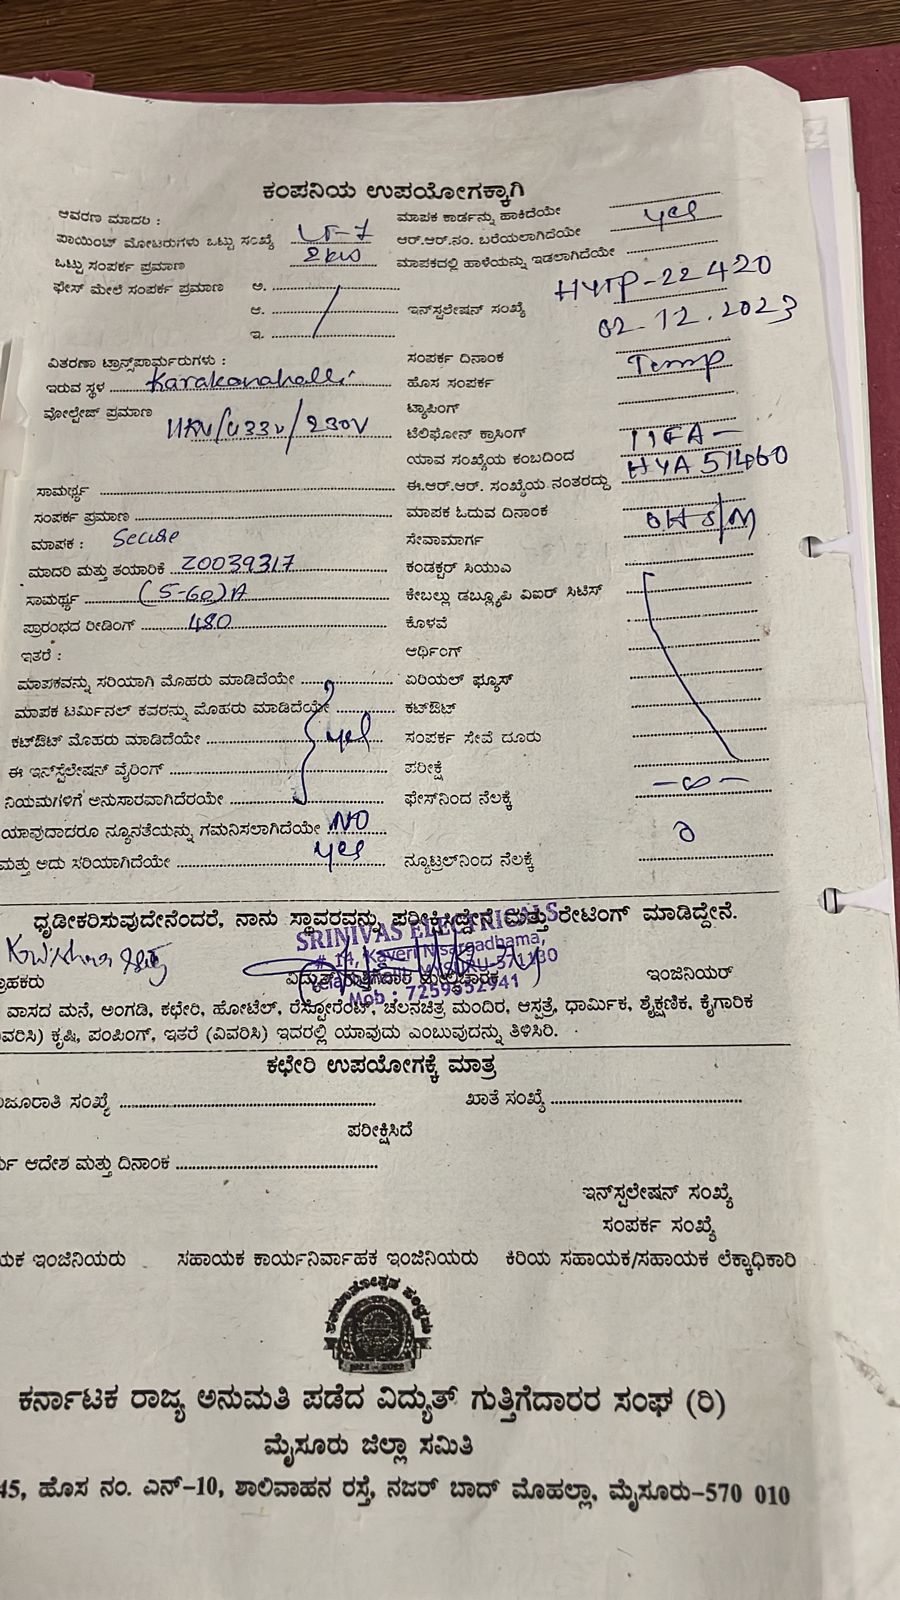 ಕಂಪನಿಯ ಉಪಯೋಗಕ್ಕಾಗಿ
ಆವರಣ ಮಾದರಿ :
ಮಾಪಕ ಕಾರ್ಡನ್ನು ಹಾಕಿದೆಯೇ
ಪಾಯಿಂಟ್ ಮೋಟರುಗಳು ಒಟ್ಟು ಸಂಖ್ಯೆ LT-7
ಆರ್.ಆರ್.ನಂ. ಬರೆಯಲಾಗಿದೆಯೇ yes
ಒಟ್ಟು ಸಂಪರ್ಕ ಪ್ರಮಾಣ 2kw
ಮಾಪಕದಲ್ಲಿ ಹಾಳೆಯನ್ನು ಇಡಲಾಗಿದೆಯೇ
ಫೇಸ್ ಮೇಲೆ ಸಂಪರ್ಕ ಪ್ರಮಾಣ ಅ.
ಆ.
ಇನ್‌ಸ್ಟಲೇಷನ್ ಸಂಖ್ಯೆ HYTP-22420
ಇ.
02.12.2023
ವಿತರಣಾ ಟ್ರಾನ್ಸ್‌ಪಾರ್ಮರುಗಳು :
ಸಂಪರ್ಕ ದಿನಾಂಕ
ಇರುವ ಸ್ಥಳ Karakanahalli
ಹೊಸ ಸಂಪರ್ಕ Temp
ವೋಲ್ಟೇಜ್ ಪ್ರಮಾಣ 11KV/433V/230V
ಟ್ಯಾಪಿಂಗ್
ಟೆಲಿಫೋನ್ ಕ್ರಾಸಿಂಗ್
ಯಾವ ಸಂಖ್ಯೆಯ ಕಂಬದಿಂದ
ಸಾಮರ್ಥ್ಯ
ಈ.ಆರ್.ಆರ್. ಸಂಖ್ಯೆಯ ನಂತರದ್ದು HYA51460
ಸಂಪರ್ಕ ಪ್ರಮಾಣ
ಮಾಪಕ ಓದುವ ದಿನಾಂಕ
ಮಾಪಕ : Secure
ಸೇವಾಮಾರ್ಗ OH S/M
ಮಾದರಿ ಮತ್ತು ತಯಾರಿಕೆ Z0039317
ಕಂಡಕ್ಟರ್ ಸಿಯುವಿ
ಸಾಮರ್ಥ್ಯ (5-60)A
ಕೇಬಲ್ಲು ಡಬ್ಲ್ಯೂಪಿ ವಿಐರ್ ಸಿಟಿಸ್
ಪ್ರಾರಂಭದ ರೀಡಿಂಗ್ 480
ಕೊಳವೆ
ಇತರೆ :
ಆರ್ಥಿಂಗ್
ಮಾಪಕವನ್ನು ಸರಿಯಾಗಿ ಮೊಹರು ಮಾಡಿದೆಯೇ
ಏರಿಯಲ್ ಫ್ಯೂಸ್
ಮಾಪಕ ಟರ್ಮಿನಲ್ ಕವರನ್ನು ಮೊಹರು ಮಾಡಿದೆಯೇ
ಕಟ್‌ಔಟ್
ಕಟ್‌ಔಟ್ ಮೊಹರು ಮಾಡಿದೆಯೇ yes
ಸಂಪರ್ಕ ಸೇವೆ ದೂರು
ಈ ಇನ್‌ಸ್ಟೆಲೇಷನ್ ವೈರಿಂಗ್
ಪರೀಕ್ಷೆ
ನಿಯಮಗಳಿಗೆ ಅನುಸಾರವಾಗಿದೆರಯೇ
ಫೇಸ್‌ನಿಂದ ನೆಲಕ್ಕೆ -∞-
ಯಾವುದಾದರೂ ನ್ಯೂನತೆಯನ್ನು ಗಮನಿಸಲಾಗಿದೆಯೇ NO
ಮತ್ತು ಅದು ಸರಿಯಾಗಿದೆಯೇ yes
ನ್ಯೂಟ್ರಲ್‌ನಿಂದ ನೆಲಕ್ಕೆ
ಧೃಡೀಕರಿಸುವುದೇನೆಂದರೆ, ನಾನು ಸ್ಥಾವರವನ್ನು ಪರೀಕ್ಷಿಸಿದ್ದೇನೆ ಮತ್ತು ರೇಟಿಂಗ್ ಮಾಡಿದ್ದೇನೆ.
SRINIVAS ELECTRICALS
# 14, Kaveri Nisargadhama,
Mob : 7259552941
ಇಂಜಿನಿಯರ್
ವಾಸದ ಮನೆ, ಅಂಗಡಿ, ಕಛೇರಿ, ಹೋಟೆಲ್, ರೆಸ್ಟೋರೆಂಟ್, ಚಲನಚಿತ್ರ ಮಂದಿರ, ಆಸ್ಪತ್ರೆ, ಧಾರ್ಮಿಕ, ಶೈಕ್ಷಣಿಕ, ಕೈಗಾರಿಕ
ವರಿಸಿ) ಕೃಷಿ, ಪಂಪಿಂಗ್, ಇತರೆ (ವಿವರಿಸಿ) ಇದರಲ್ಲಿ ಯಾವುದು ಎಂಬುವುದನ್ನು ತಿಳಿಸಿರಿ.
ಕಛೇರಿ ಉಪಯೋಗಕ್ಕೆ ಮಾತ್ರ
ಜೂರಾತಿ ಸಂಖ್ಯೆ
ಖಾತೆ ಸಂಖ್ಯೆ
ಪರೀಕ್ಷಿಸಿದೆ
ಆದೇಶ ಮತ್ತು ದಿನಾಂಕ
ಇನ್‌ಸ್ಟಲೇಷನ್ ಸಂಖ್ಯೆ
ಸಂಪರ್ಕ ಸಂಖ್ಯೆ
ಯಕ ಇಂಜಿನಿಯರು ಸಹಾಯಕ ಕಾರ್ಯನಿರ್ವಾಹಕ ಇಂಜಿನಿಯರು ಕಿರಿಯ ಸಹಾಯಕ/ಸಹಾಯಕ ಲೆಕ್ಕಾಧಿಕಾರಿ
ಕರ್ನಾಟಕ ರಾಜ್ಯ ಅನುಮತಿ ಪಡೆದ ವಿದ್ಯುತ್ ಗುತ್ತಿಗೆದಾರರ ಸಂಘ (ರಿ)
ಮೈಸೂರು ಜಿಲ್ಲಾ ಸಮಿತಿ
45, ಹೊಸ ನಂ. ಎನ್-10, ಶಾಲಿವಾಹನ ರಸ್ತೆ, ನಜರ್ ಬಾದ್ ಮೊಹಲ್ಲಾ, ಮೈಸೂರು-570 010